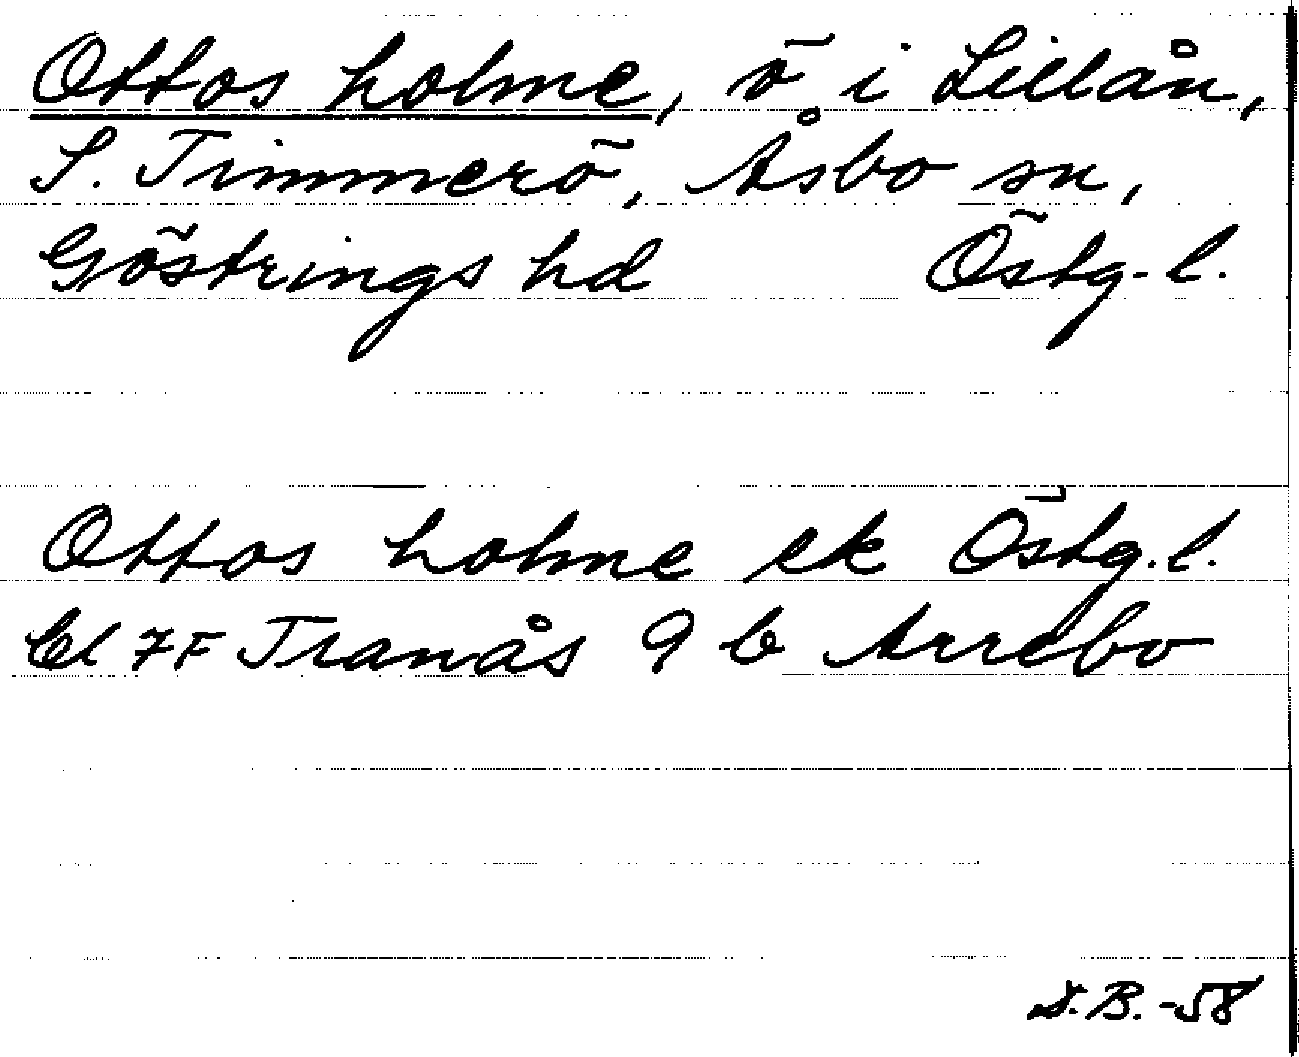 Ottos holme, ö i Lillån,
S. Timmerö, Åsbo sn,
Göstrings hd Östg. l.
Ottos holme ek Östg. l.
bl 7F Tranås 9 b Arrebo
D.B. -58